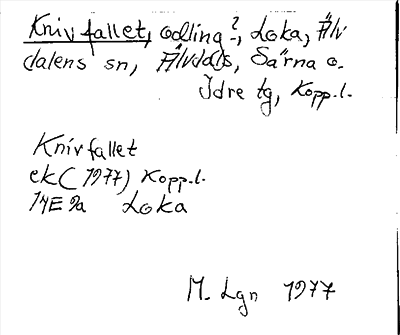 Knivfallet, odling?, Loka, Älv
dalens sn, Älvdals, Särna o.
Idre tg, Kopp.l.
Knivfallet
ek (1977) Kopp.l.
14E 9a Loka
M. Lgn 1977